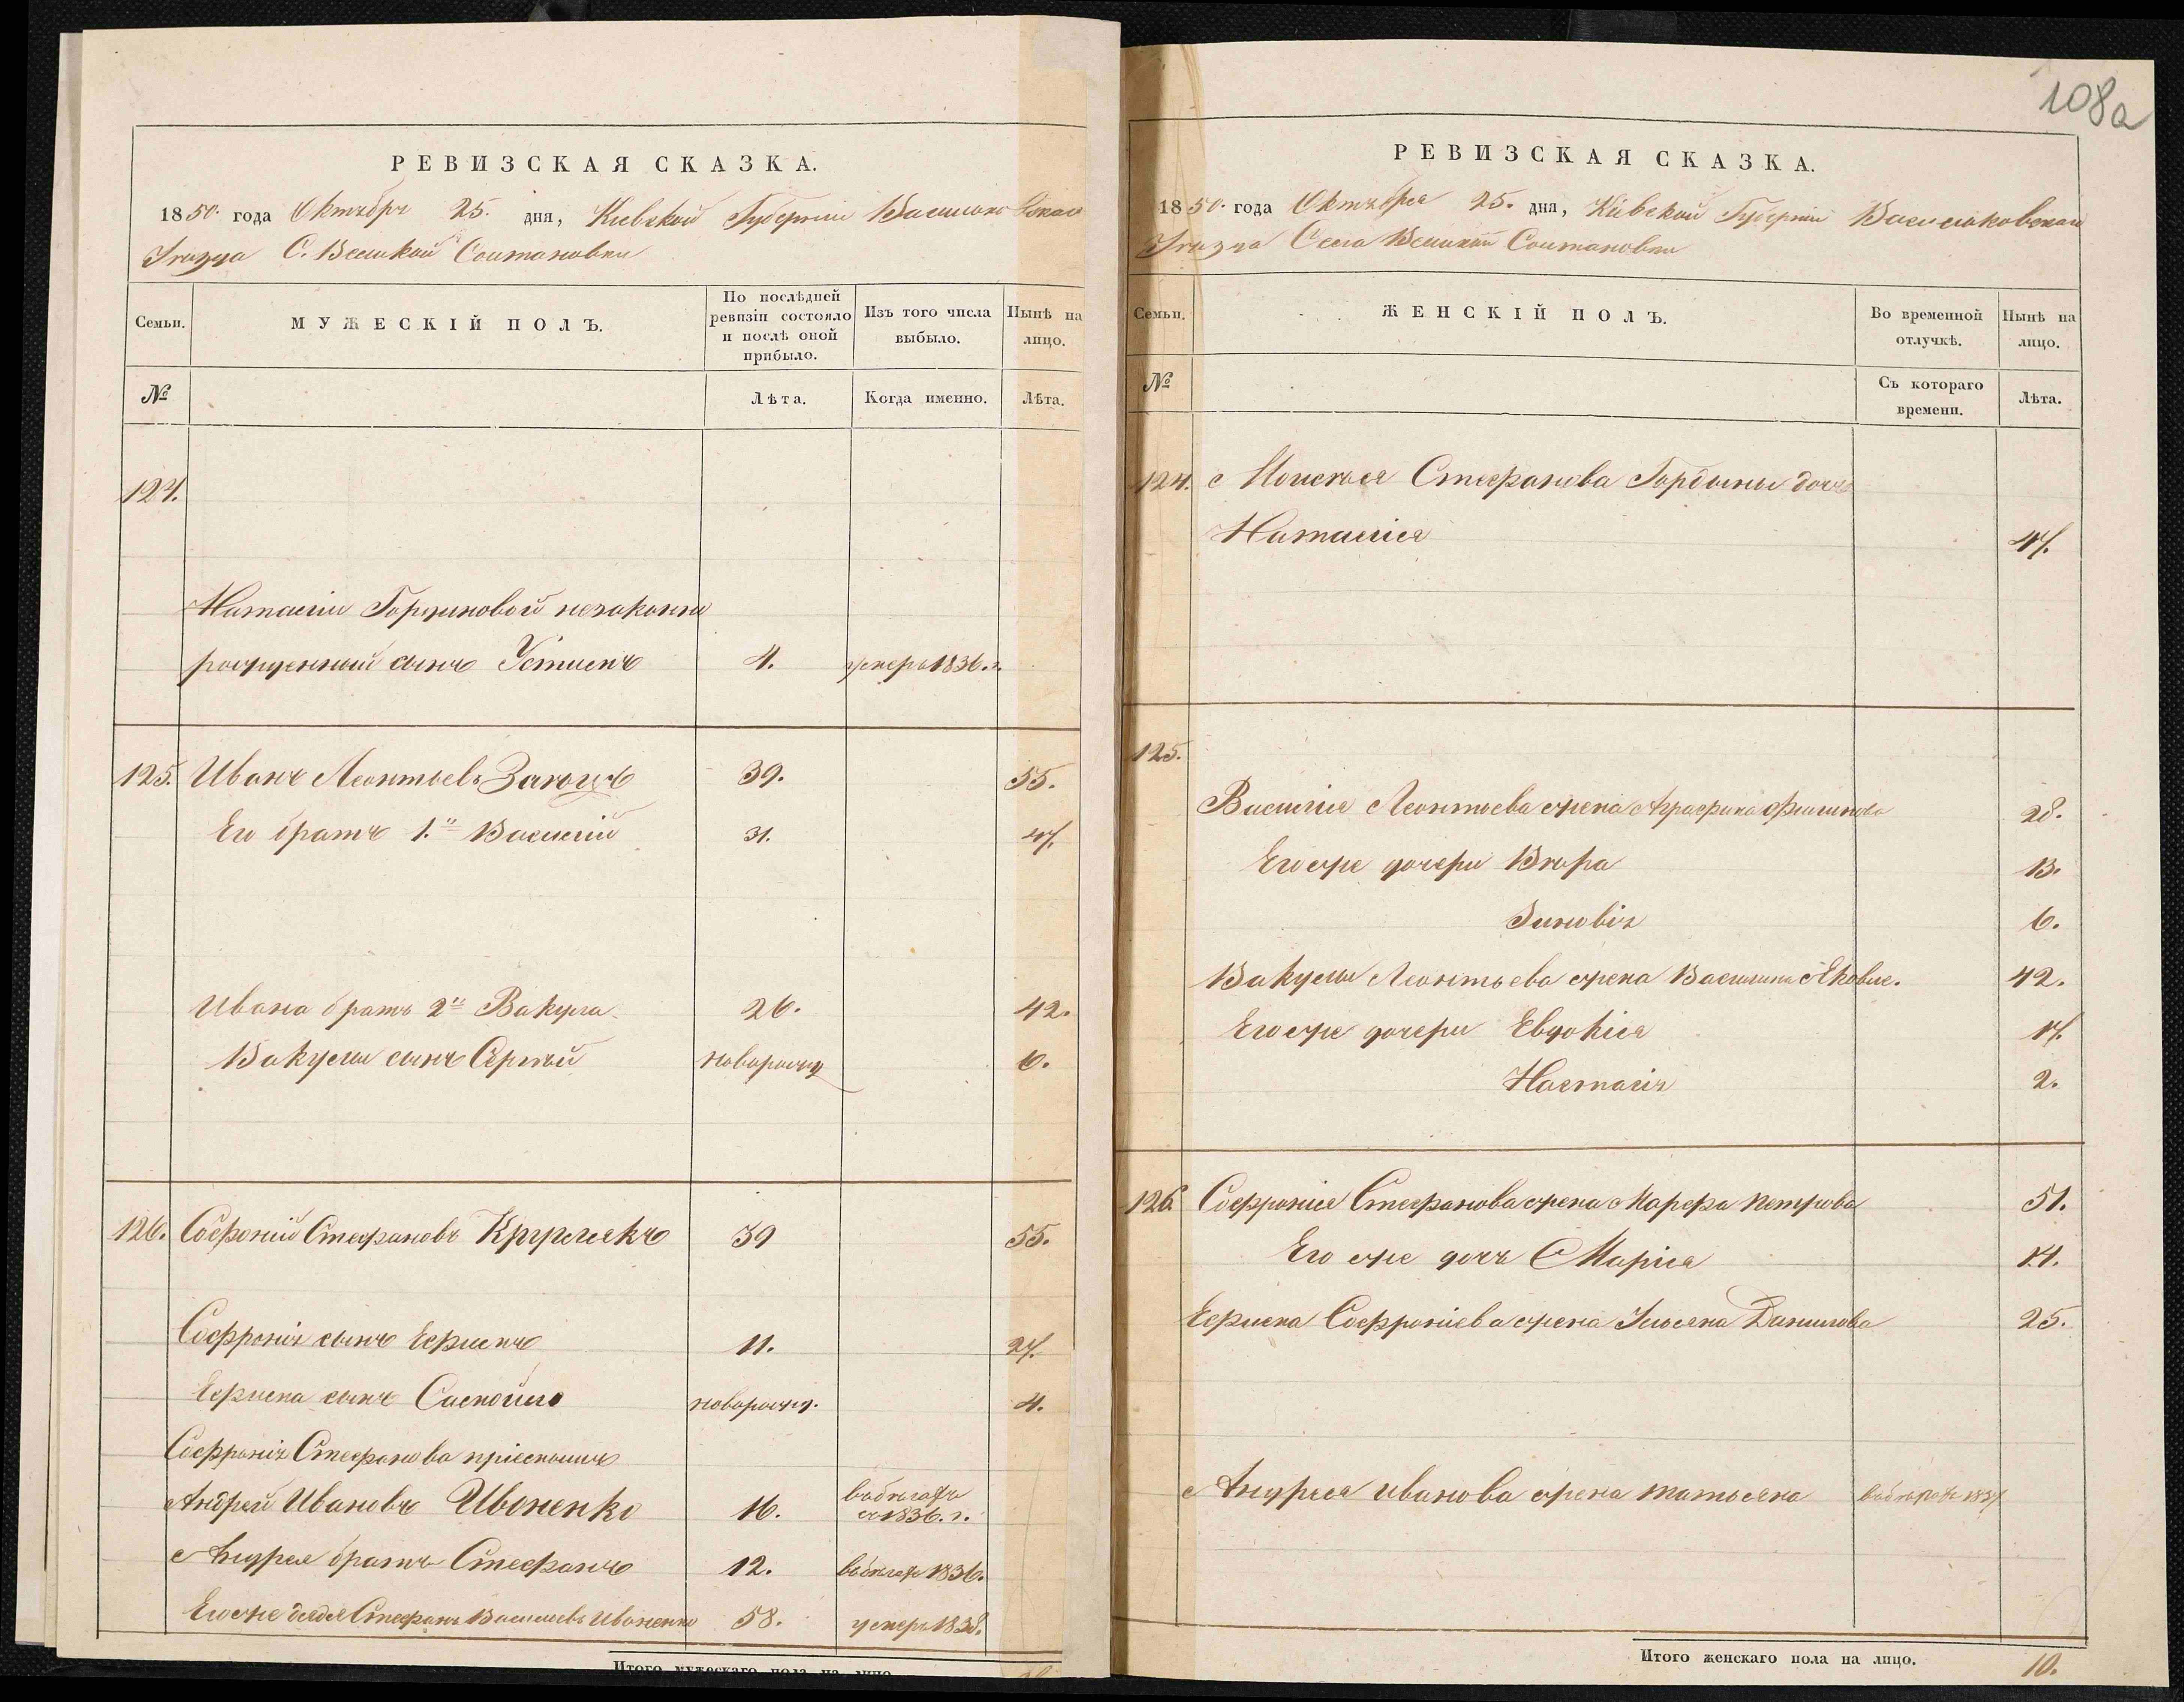 108а
РЕВИЗСКАЯ СКАЗКА.
1850. года Октября 25. дня, Киевской Губернии Васильковскаго
Уезда С. Великой Солтановки
Семьи.
МУЖЕСКІЙ ПОЛЪ.
По послѣдней ревизіи состояло и послѣ оной прибыло.
Изъ того числа выбыло.
Нынѣ на лицо.
№
Лѣта.
Когда именно.
Лѣта.
124.
Наталіи Гордіиновой незаконно
рожденный сынъ Устимъ 4. умеръ 1836. г.
125. Иванъ Леонтьевъ Заюнъ 39. 55.
Его братъ 1.й Василій 31. 47.
Ивана братъ 2й Вакула 26. 42.
Вакулы сынъ Сергѣй новорожд 6.
126. Софроній Стефановъ Кругликъ 39 55.
Софронія сынъ Ефимъ 11. 27.
Ефима сынъ Самойло новорожд. 4.
Софронія Стефанова пріемышъ
Андрей Ивановъ Ивоненко 16. въ бѣгахъ
съ 1836. г.
Андрея братъ Стефанъ 12. въ бѣгахъ 1836.
Его же дядя Стефанъ Васильевъ Ивоненко 58. умеръ 1838.
Итого мужескаго пола на лицо
РЕВИЗСКАЯ СКАЗКА.
1850. года Октября 25. дня, Кіевской Губерніи Васильковскаго
Уезда Села Великой Солтановки
Семьи.
ЖЕНСКІЙ ПОЛЪ.
Во временной отлучкѣ.
Нынѣ на лицо.
№
Съ котораго времени.
Лѣта.
124. Моисея Стефанова Гордины дочь
Наталія 47.
125.
Василія Леонтьева жена Аграфена Филипова 28.
Его же дочери Вѣра 13.
Зиновія 6.
Вакулы Леонтьева жена Василина Яковле. 42.
Его же дочери Евдокія 17.
Настасія 2.
126. Софронія Стефанова жена Марфа Петрова 51.
Его же дочь Марія 14.
Ефима Софроніева жена Ульяна Данилова 25.
Андрея Иванова жена Татьяна въ бѣгахъ 1837
Итого женскаго пола на лицо. 10.